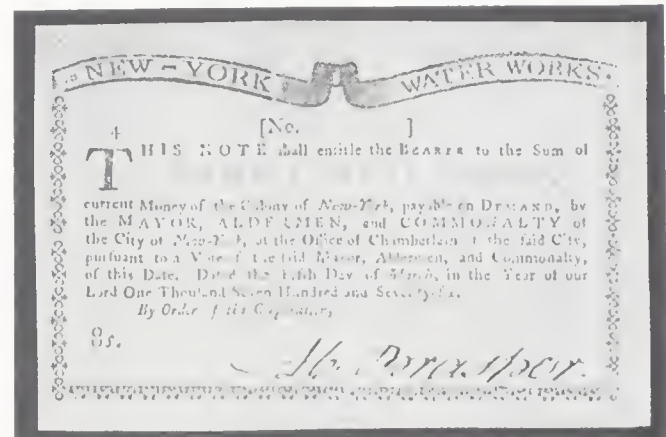 NEW-YORK WATER WORKS.
[No. ]
THIS NOTE shall entitle the BEARER to the Sum of
current Money of the Colony of New-York, payable on DEMAND, by
the MAYOR, ALDERMEN, and COMMONALTY of
the City of New-York, at the Office of Chamberlain of the said City,
pursuant to a Vote of the said Mayor, Aldermen, and Commonalty,
of this Date. Dated the Fifth Day of March, in the Year of our
Lord One Thousand Seven Hundred and Seventy-six.
By Order of the Corporation,
8s.